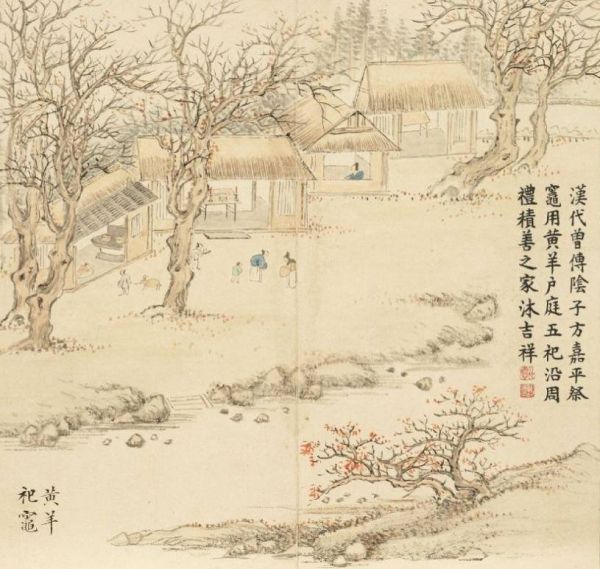 漢代曾傳陰子方嘉平祭
竈用黄羊户庭五祀沿周
禮積善之家沐吉祥
黄羊
祀竈